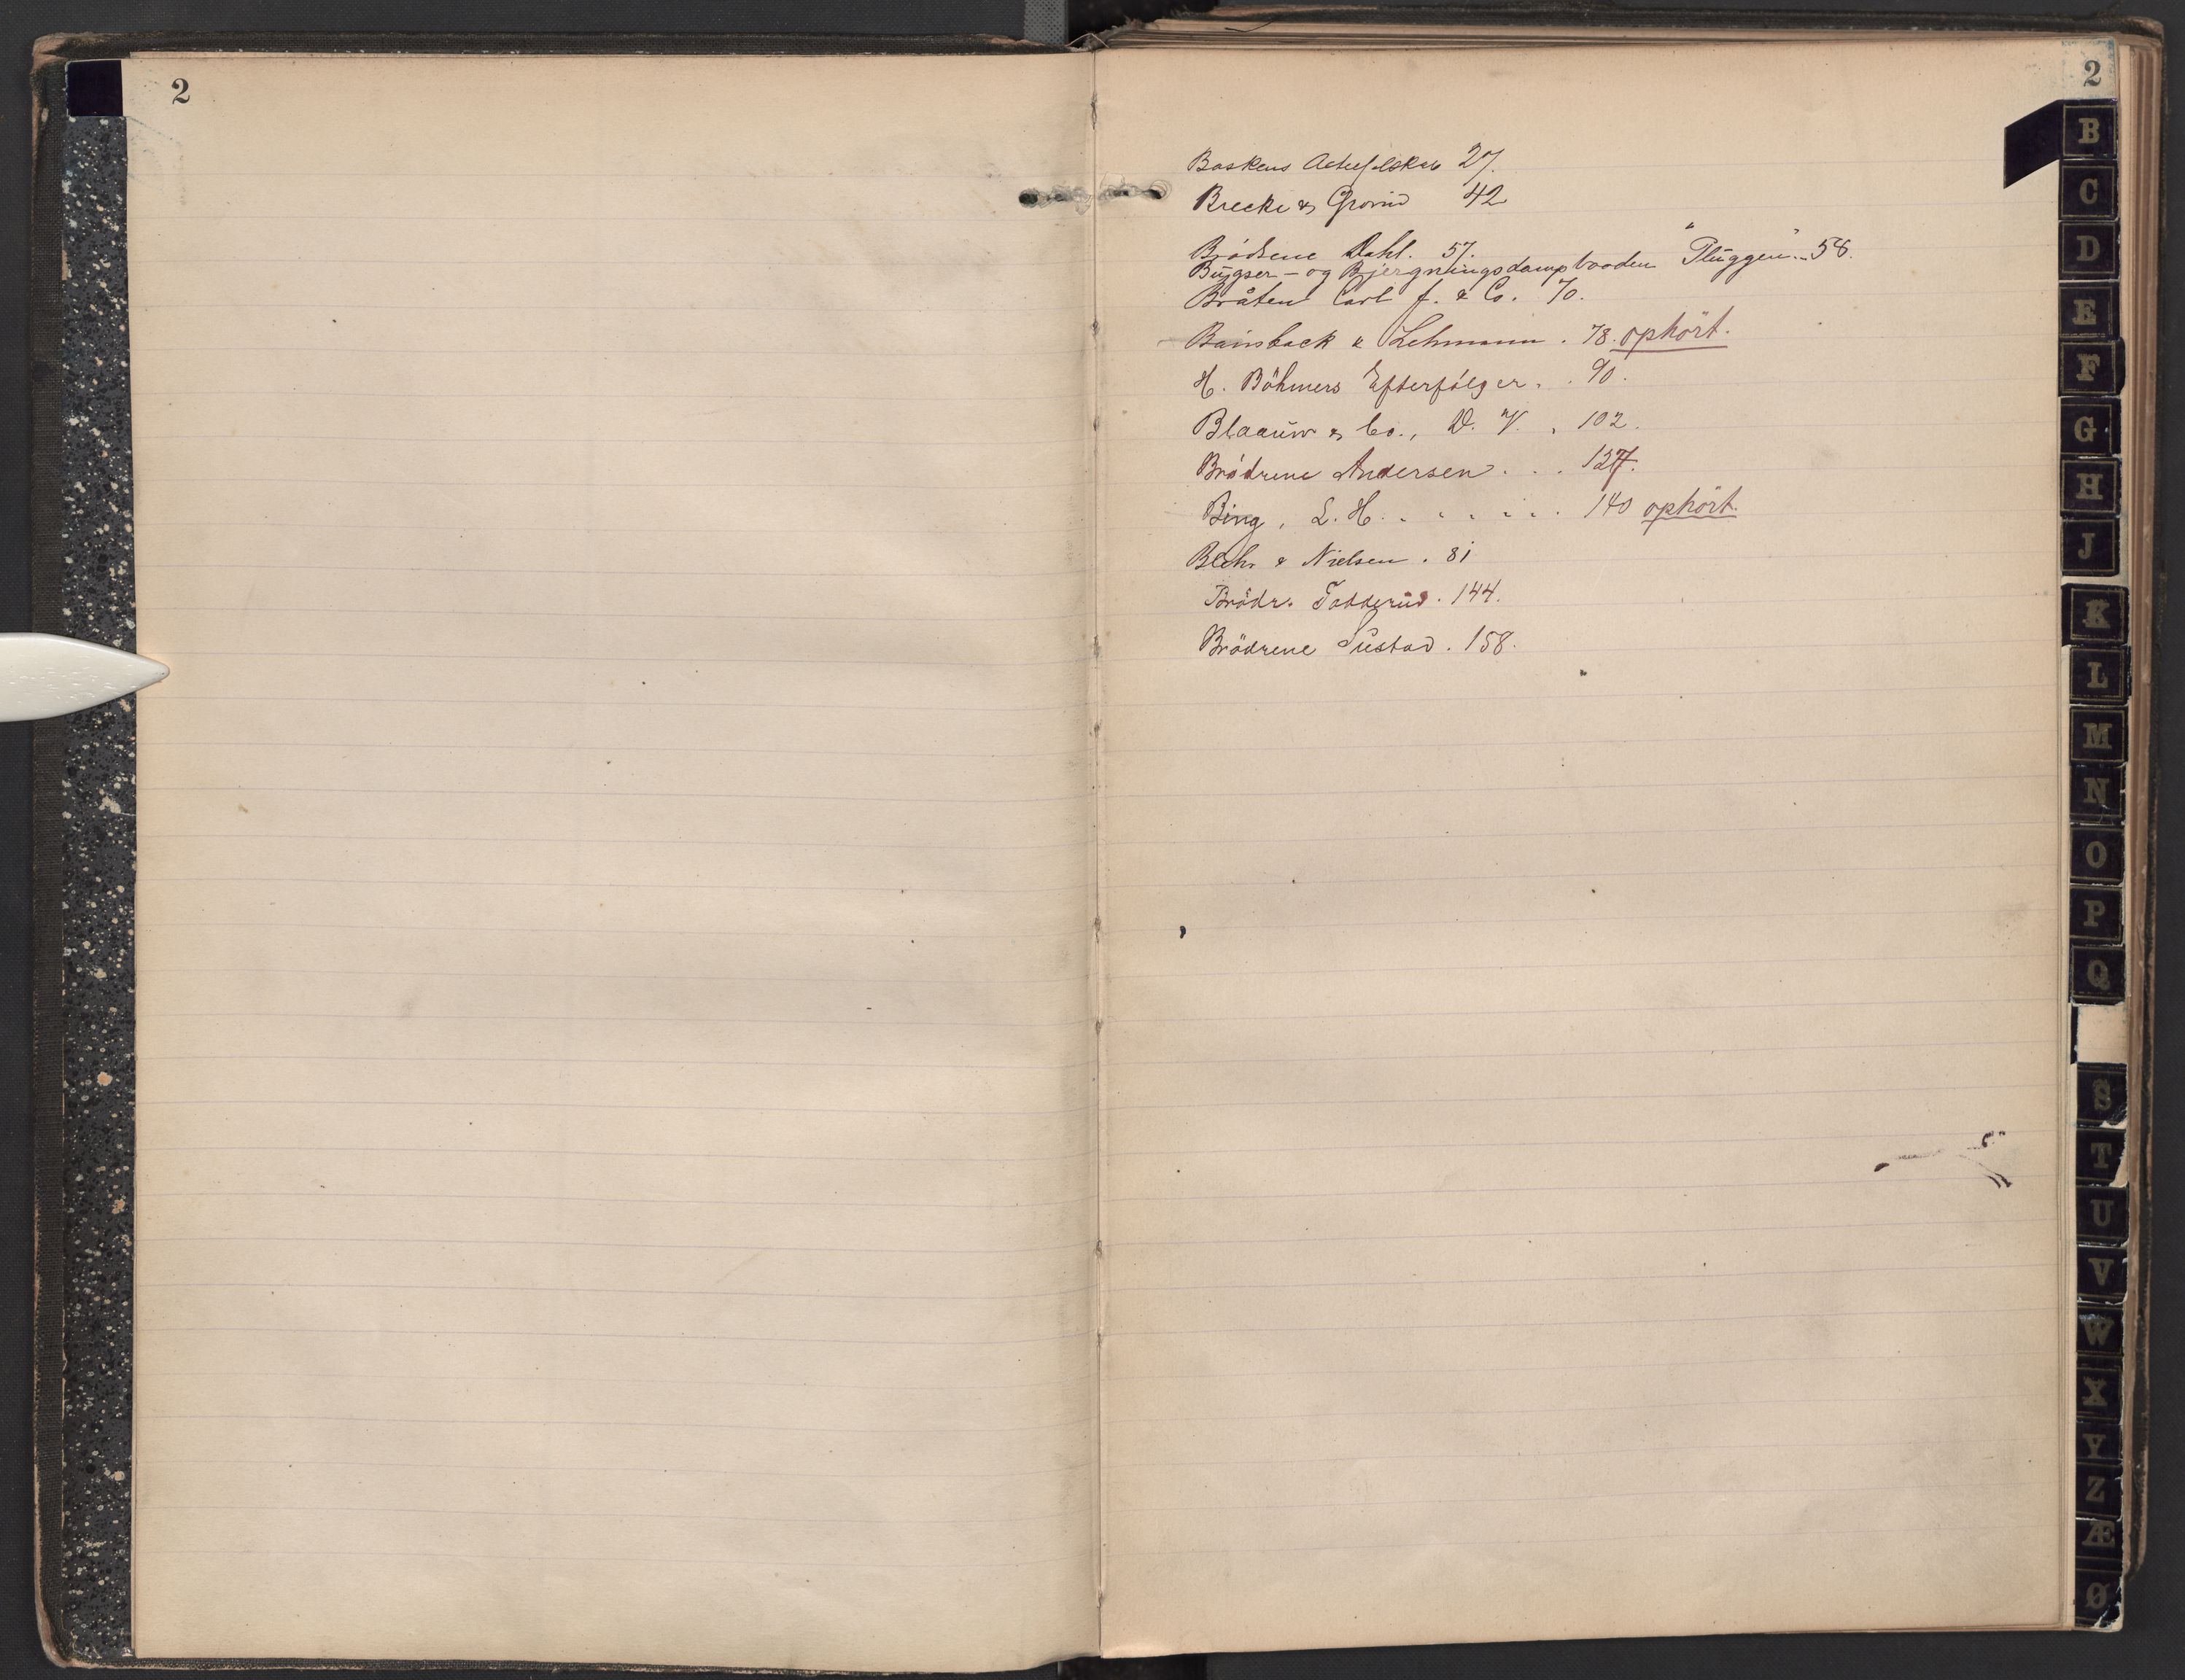 2
2
Baskens Actieselskab 27.
Brecke & Grorud 42
Brödrene Dahl. 57.
Bugser- og Bjergningsdampbaaden "Pluggen" 58.
Bråten Carl J. & Co. 70.
Bainsback & Lehmann. 78. ophört.
H. Böhmers Efterfölger. . 90.
Blaauw & Co., D. V. . 102.
Brödrene Andersen . . . 127.
Bing, L. H. . . . . . . 140 ophört.
Blehr & Nielsen. 81
Brödr. Tobderud. 144.
Brödrene Sustad. 158.
B
C
D
E
F
G
H
J
K
L
M
N
O
P
Q
S
T
U
V
W
X
Y
Z
Æ
Ø